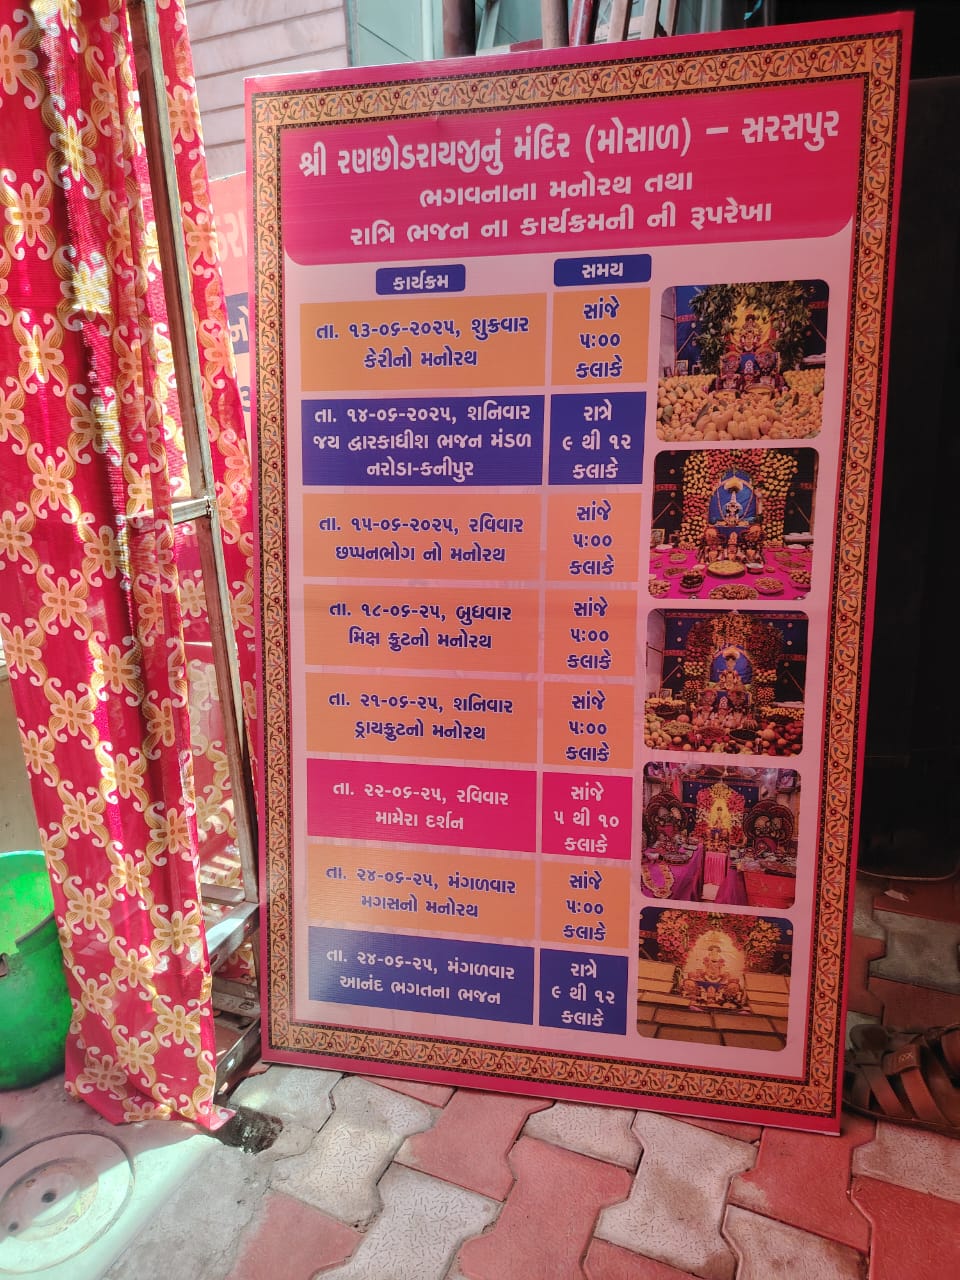 શ્રી રણછોડરાયજીનું મંદિર (મોસાળ) – સરસપુર
ભગવનાના મનોરથ તથા
રાત્રિ ભજન ના કાર્યક્રમની ની રૂપરેખા
કાર્યક્રમ
સમય
તા. ૧૩-૦૬-૨૦૨૫, શુક્રવાર
કેરીનો મનોરથ
સાંજે
૫:૦૦
કલાકે
તા. ૧૪-૦૬-૨૦૨૫, શનિવાર
જય દ્વારકાધીશ ભજન મંડળ
નરોડા-કનીપુર
રાત્રે
૯ થી ૧૨
કલાકે
તા. ૧૫-૦૬-૨૦૨૫, રવિવાર
છપ્પનભોગ નો મનોરથ
સાંજે
૫:૦૦
કલાકે
તા. ૧૮-૦૬-૨૫, બુધવાર
મિક્ષ ફ્રુટનો મનોરથ
સાંજે
૫:૦૦
કલાકે
તા. ૨૧-૦૬-૨૫, શનિવાર
ડ્રાયફ્રુટનો મનોરથ
સાંજે
૫:૦૦
કલાકે
તા. ૨૨-૦૬-૨૫, રવિવાર
મામેરા દર્શન
સાંજે
૫ થી ૧૦
કલાકે
તા. ૨૪-૦૬-૨૫, મંગળવાર
મગસનો મનોરથ
સાંજે
૫:૦૦
કલાકે
તા. ૨૪-૦૬-૨૫, મંગળવાર
આનંદ ભગતના ભજન
રાત્રે
૯ થી ૧૨
કલાકે